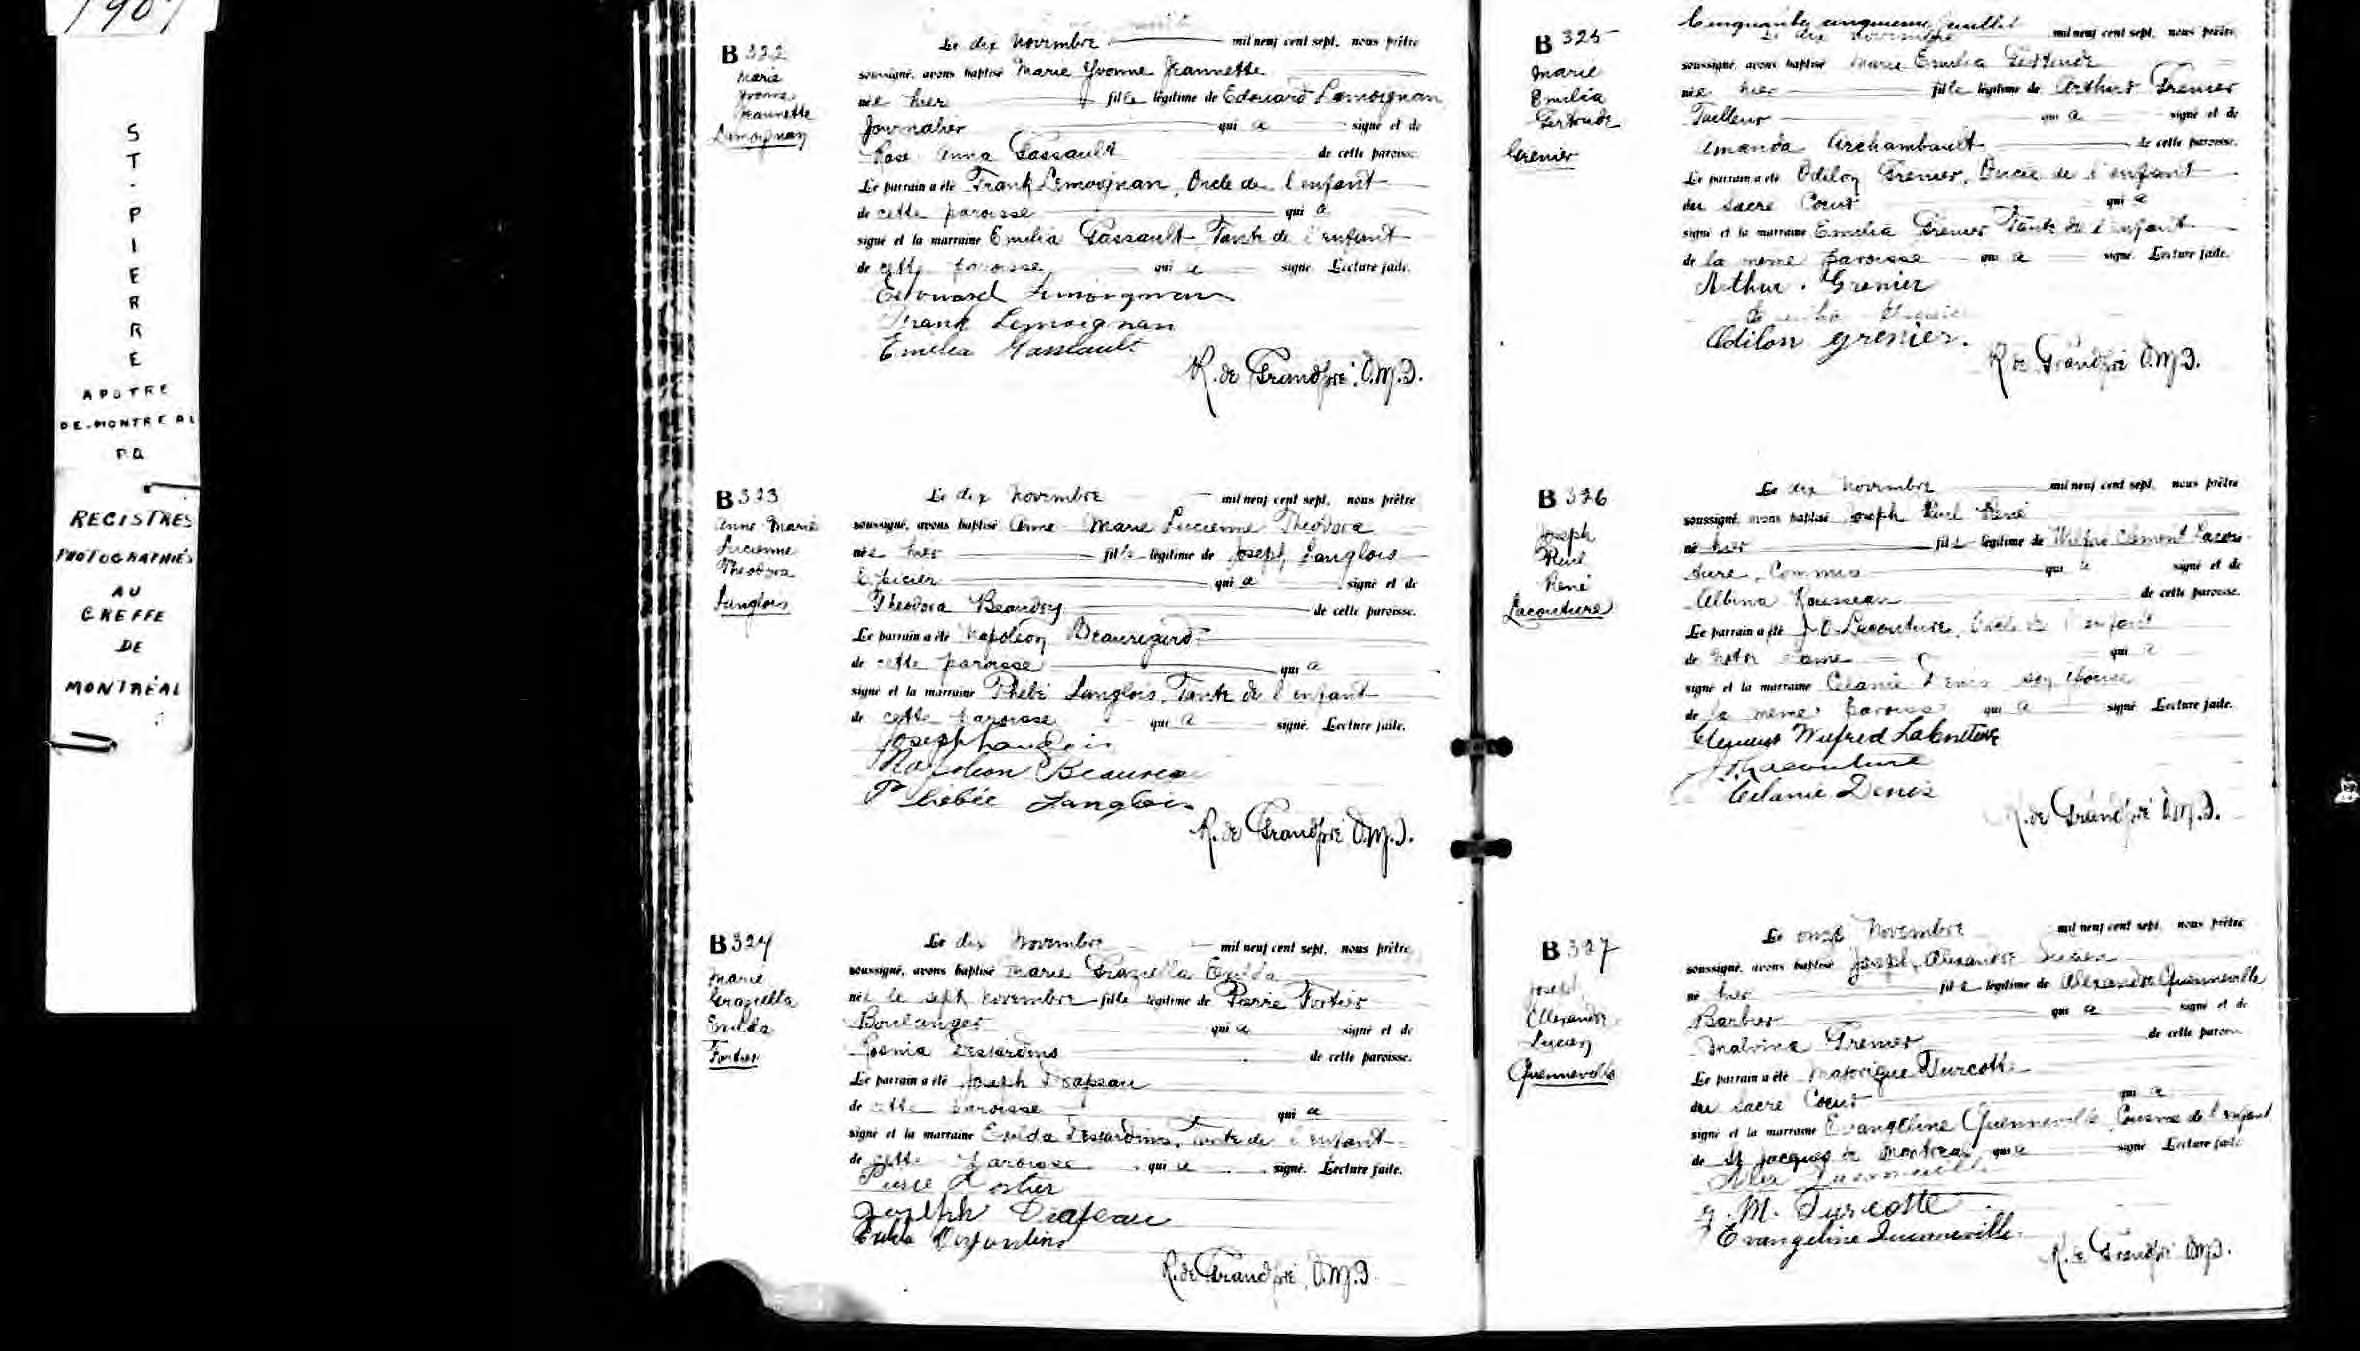 1907
ST-PIERRE
APOTRE
DE-MONTREAL
PQ
REGISTRES
PHOTOGRAPHIÉS
AU
GREFFE
DE
MONTRÉAL
B 322
Marie
Yvonne
Jeannette
Lemoignan
Le dix Novembre mil neuf cent sept, nous prêtre
soussigné, avons baptisé Marie Yvonne Jeannette
née hier fille légitime de Edouard Lemoignan
Journalier qui a signé et de
Rose Anna Gassault de cette paroisse.
Le parrain a été Frank Lemoignan, Oncle de l'enfant
de cette paroisse qui a
signé et la marraine Emelia Gassault Tante de l'enfant
de cette paroisse qui a signé. Lecture faite.
Edouard Lemoignan
Frank Lemoignan
Emelia Gassault
R. de Grandpré, O.M.I.
B 323
Anne Marie
Lucienne
Theodora
Langlois
Le dix Novembre mil neuf cent sept, nous prêtre
soussigné, avons baptisé Anne Marie Lucienne Theodora
née hier fille légitime de Joseph Langlois
Epicier qui a signé et de
Theodora Beaudry de cette paroisse.
Le parrain a été Napoléon Beauregard
de cette paroisse qui a
signé et la marraine Phébé Langlois, Tante de l'enfant
de cette paroisse qui a signé. Lecture faite.
Joseph Langlois
Napoléon
Phebée Langlois
R. de Grandpré O.M.I.
B 324
Marie
Graziella
Enilda
Fortier
Le dix Novembre mil neuf cent sept, nous prêtre
soussigné, avons baptisé Marie Graziella Enilda
née le sept Novembre fille légitime de Pierre Fortier
Boulanger qui a signé et de
Desjardins de cette paroisse.
Le parrain a été Joseph Drapeau
de cette paroisse qui a
signé et la marraine Enilda Desjardins, Tante de l'enfant
de cette paroisse qui a signé. Lecture faite.
Pierre Fortier
Joseph Drapeau
Desjardins
R. de Grandpré, O.M.I.
Cinquante cinquieme feuillet
B 325
Marie
Emilia
Gertrude
Grenier
Le dix Novembre mil neuf cent sept, nous prêtre
soussigné, avons baptisé Marie Emilia Gertrude
née hier fille légitime de Arthur Grenier
Tailleur qui a signé et de
Amanda Archambault de cette paroisse.
Le parrain a été Odilon Grenier, Oncle de l'enfant
du Sacré Coeur qui a
signé et la marraine Emelia Grenier Tante de l'enfant
de la même paroisse qui a signé. Lecture faite.
Arthur Grenier
Odilon Grenier.
R de Grandpré O.M.I.
B 326
Joseph
Paul
René
Lacouture
Le dix Novembre mil neuf cent sept, nous prêtre
soussigné, avons baptisé Joseph Paul René
né hier fils légitime de Wilfrid Clément Lacou-
ture, Commis qui a signé et de
Albina Rousseau de cette paroisse.
Le parrain a été J. O. Lacouture, Oncle de l'enfant
de Notre Dame qui a
signé et la marraine Célanie Denis son épouse
de la même paroisse qui a signé. Lecture faite.
Clément Wilfred Lacouture
Lacouture
Célanie Denis
R. de Grandpré O.M.I.
B 327
Joseph
Alexandre
Lucien
Quenneville
Le onze Novembre mil neuf cent sept, nous prêtre
soussigné, avons baptisé Joseph Alexandre Lucien
né hier fils légitime de Alexandre Quenneville
Barbier qui a signé et de
Malvina Grenier de cette paroisse
Le parrain a été Turcotte
du Sacré Coeur qui a
signé et la marraine Evangeline Quenneville, Cousine de l'enfant
de St Jacques de Montreal, qui a signé Lecture faite
Alex Quenneville
J. M. Turcotte
Evangeline Quenneville
R. de Grandpré OMI.